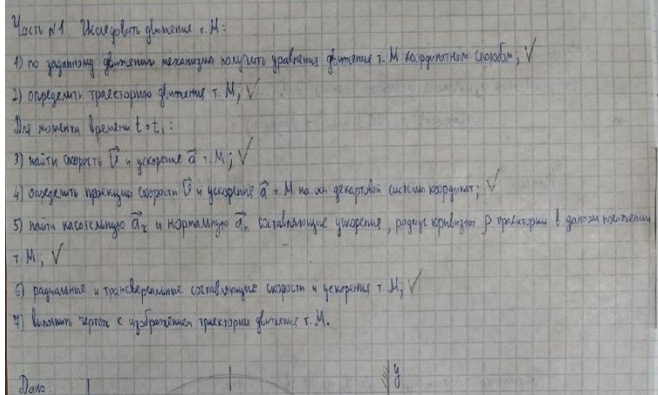 Часть №1 Исследовать движение т. М:
1) по заданному движению механизма получить уравнения движения т. М координатным способом; ✓
2) определить траекторию движения т. М; ✓
Для момента времени t = t₁:
3) найти скорость v⃗ и ускорение a⃗ т. М; ✓
4) определить проекции скорости v⃗ и ускорения a⃗ т. М на оси декартовой системы координат; ✓
5) найти касательную a⃗τ и нормальную a⃗n составляющие ускорения, радиус кривизны ρ траектории в данном положении
т. М; ✓
6) радиальные и трансверсальные составляющие скорости и ускорения т. М; ✓
7) выполнить чертёж с изображением траектории движения т. М.
Дано:
y